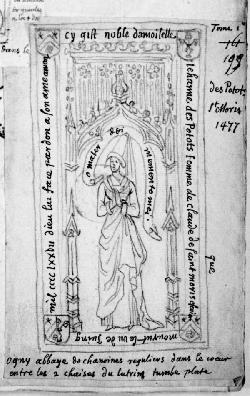 Tome 1
cy gist noble damoiselle
Jehanne des Potots femme de claude de saint moris
que
mourut le
de Juing
mil cccc lxxvii dieu lui face pardon a son ame amen
o mater dei
memento mei
des Potots
St Moris
1477
ogny abbaye de chanoines reguliers dans le coeur
entre les 2 chaises du lutrin tumbe plate